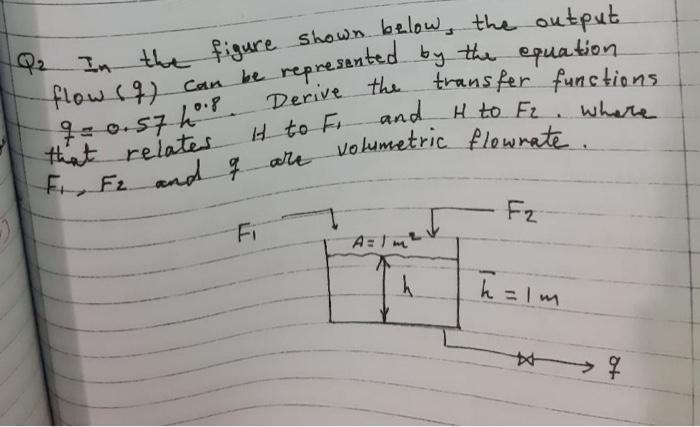 Q2 In the figure shown below, the output
flow (q) can be represented by the equation
q = 0.57 h^0.8. Derive the transfer functions
that relates H to F1 and H to F2. where
F1, F2 and q are volumetric flowrate.
F1
F2
A = 1 m²
h
h̄ = 1 m
q